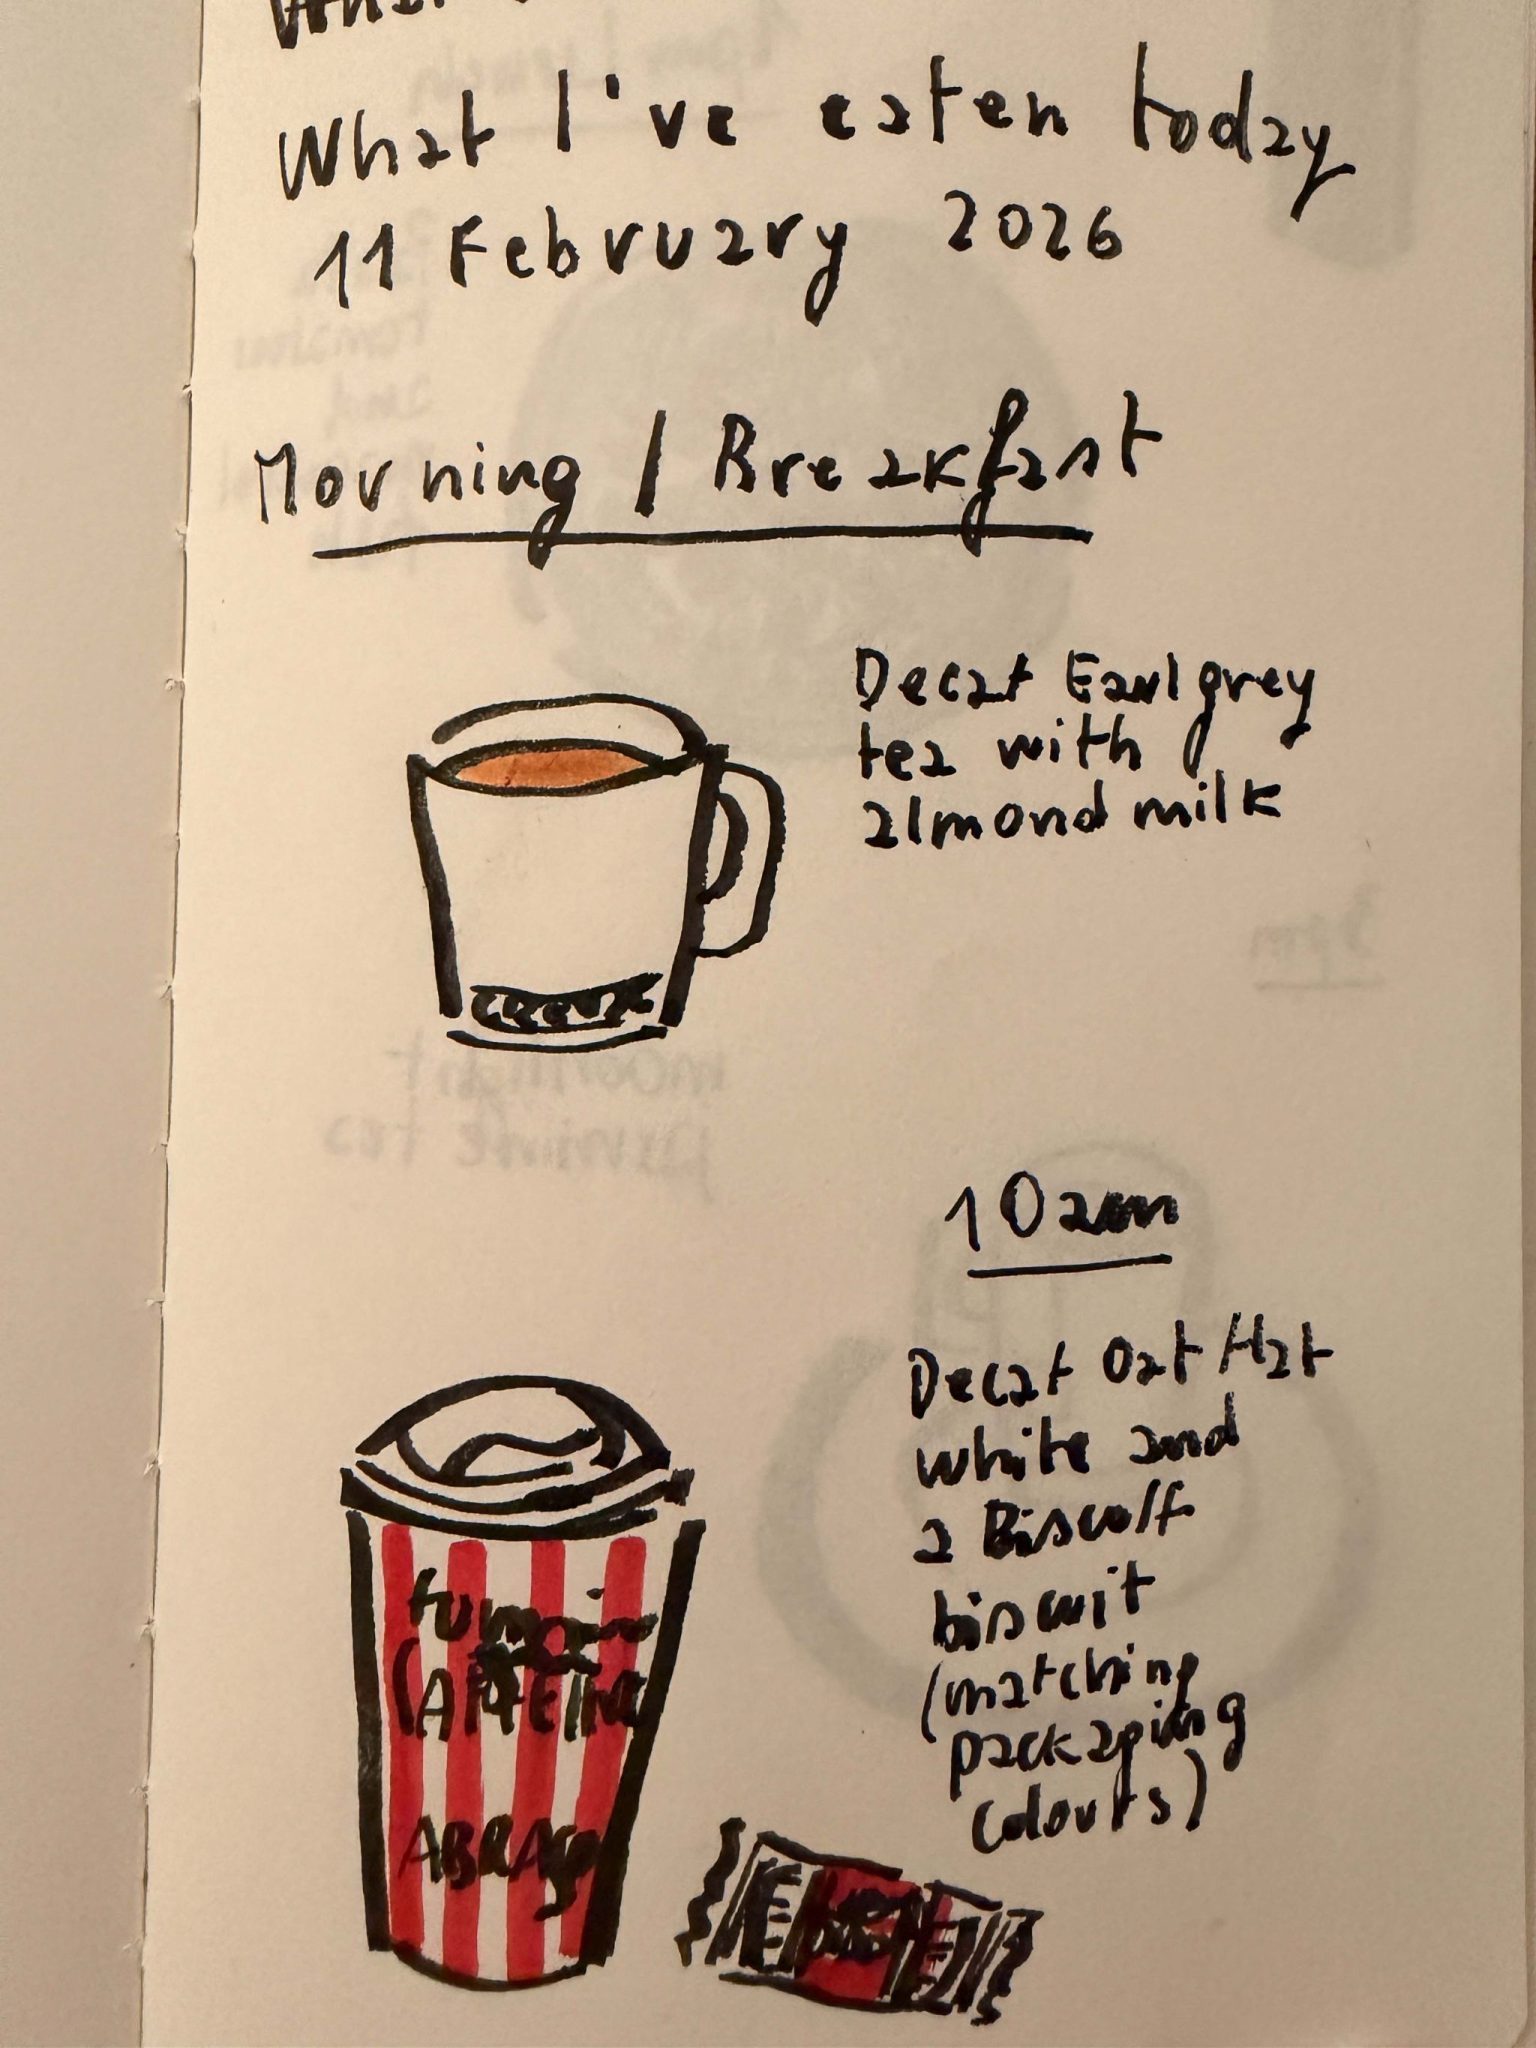 What I've eaten today
11 February 2026
Morning / Breakfast
Decaf Earl grey
tea with
almond milk
10am
Decaf Oat flat
white and
a Biscoff
biscuit
(matching
packaging
colours)
CAFFEINE
ABRAÇO